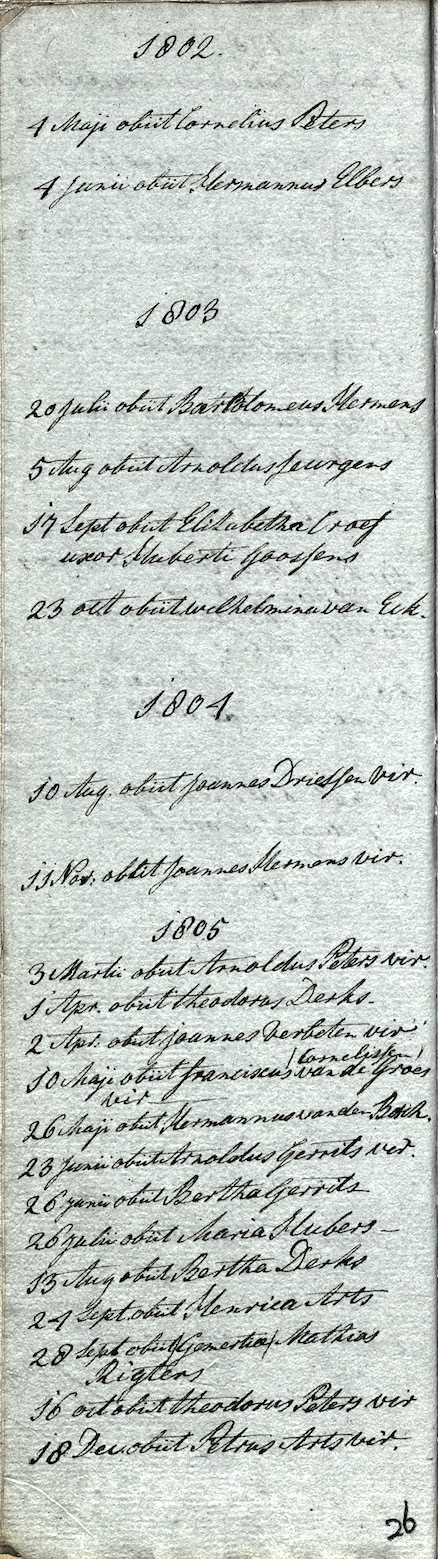 1802.
4 Maji obiit Cornelius Peters
4 Junii obiit Hermannus Elbers
1803
20 Julii obiit Bartolomeus Hermens
5 Aug obiit Arnoldus Jeurgens
17 Sept obiit Elizabetha Croef
uxor Huberti Goossens
23 oct obiit wilhelmina van Eck.
1804
10 Aug. obiit Joannes Driessen vir.
11 Nov. obiit Joannes Hermens vir.
1805
3 Martii obiit Arnoldus Peters vir.
1 Apr. obiit theodorus Derks-
2 Apr. obiit joannes Verbeten vir
(Cornelissen)
10 Maji obiit franciscus van de Groes
vir
26 Maji obiit Hermannus van den Bock.
23 Junii obiit Arnoldus Gerrits vir.
26 junii obiit Bertha Gerrits
26 julii obiit Maria Hubers-
13 Aug obiit Bertha Derks
24 Sept. obiit Henrica Arts
28 Sept obiit (Gemertia) Mathias
Rigters
16 oct obiit theodorus Peters vir
18 Dec. obiit Petrus Arts vir.
26